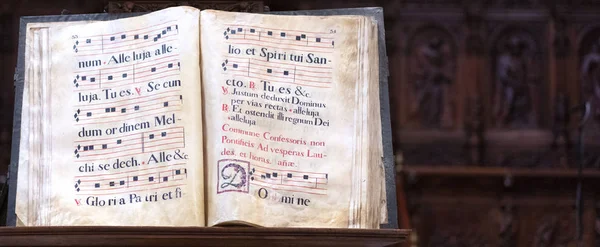 num. Alleluja alle-
luja. Tu es. ℣ Se cun
dum ordinem Mel-
chi se dech. Alle &c
℣ Glo ri a Pa tri et fi
lio et Spiri tui San-
cto. ℟ Tu es &c.
℣ Justum deduxit Dominus
per vias rectas alleluja
℟ Et ostendit illi regnum Dei
alleluja
Commune Confessoris non
Pontificis Ad vesperas Lau-
des et horas. añæ.
D O mi ne